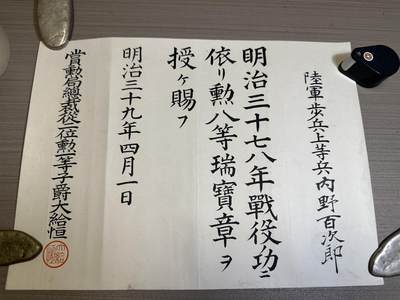 陸軍歩兵上等兵内野百次郎
明治三十七八年戰役ノ功ニ
依リ勲八等瑞寶章ヲ
授ケ賜フ
明治三十九年四月一日
賞勲局總裁從二位勲一等子爵大給恒